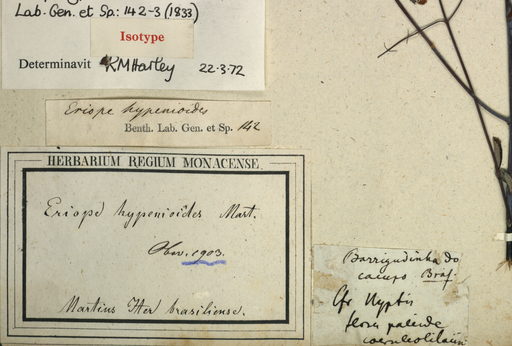 Lab. Gen. et Sp.: 142-3 (1833)
Isotype
Determinavit RM Harley 22·3·72
Eriope hypenioides
Benth. Lab. Gen. et Sp. 142
HERBARIUM REGIUM MONACENSE.
Eriope hypenioides Mart.
Obs. 1903.
Martius Iter brasiliense.
Barrigudinha do
campo Bras.
Cfr Hyptis
flores